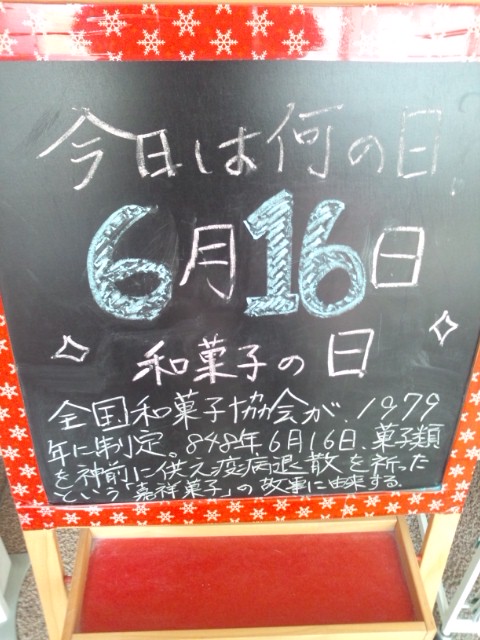 今日は何の日
6月16日
和菓子の日
全国和菓子協会が、1979
年に制定。848年6月16日、菓子類
を神前に供え疫病退散を祈った
という「嘉祥菓子」の故事に由来する。